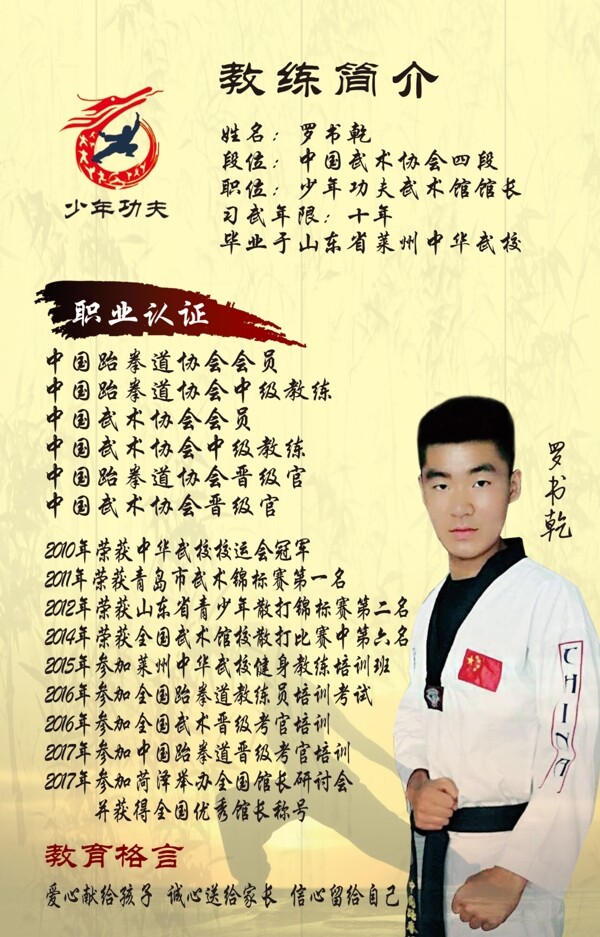 教练简介
少年功夫
姓名：罗书乾
段位：中国武术协会四段
职位：少年功夫武术馆馆长
习武年限：十年
毕业于山东省莱州中华武校
职业认证
中国跆拳道协会会员
中国跆拳道协会中级教练
中国武术协会会员
中国武术协会中级教练
中国跆拳道协会晋级官
中国武术协会晋级官
罗书乾
2010年荣获中华武校校运会冠军
2011年荣获青岛市武术锦标赛第一名
2012年荣获山东省青少年散打锦标赛第二名
2014年荣获全国武术馆校散打比赛中第六名
2015年参加莱州中华武校健身教练培训班
2016年参加全国跆拳道教练员培训考试
2016年参加全国武术晋级考官培训
2017年参加中国跆拳道晋级考官培训
2017年参加菏泽举办全国馆长研讨会
并获得全国优秀馆长称号
CHINA
教育格言
爱心献给孩子 诚心送给家长 信心留给自己